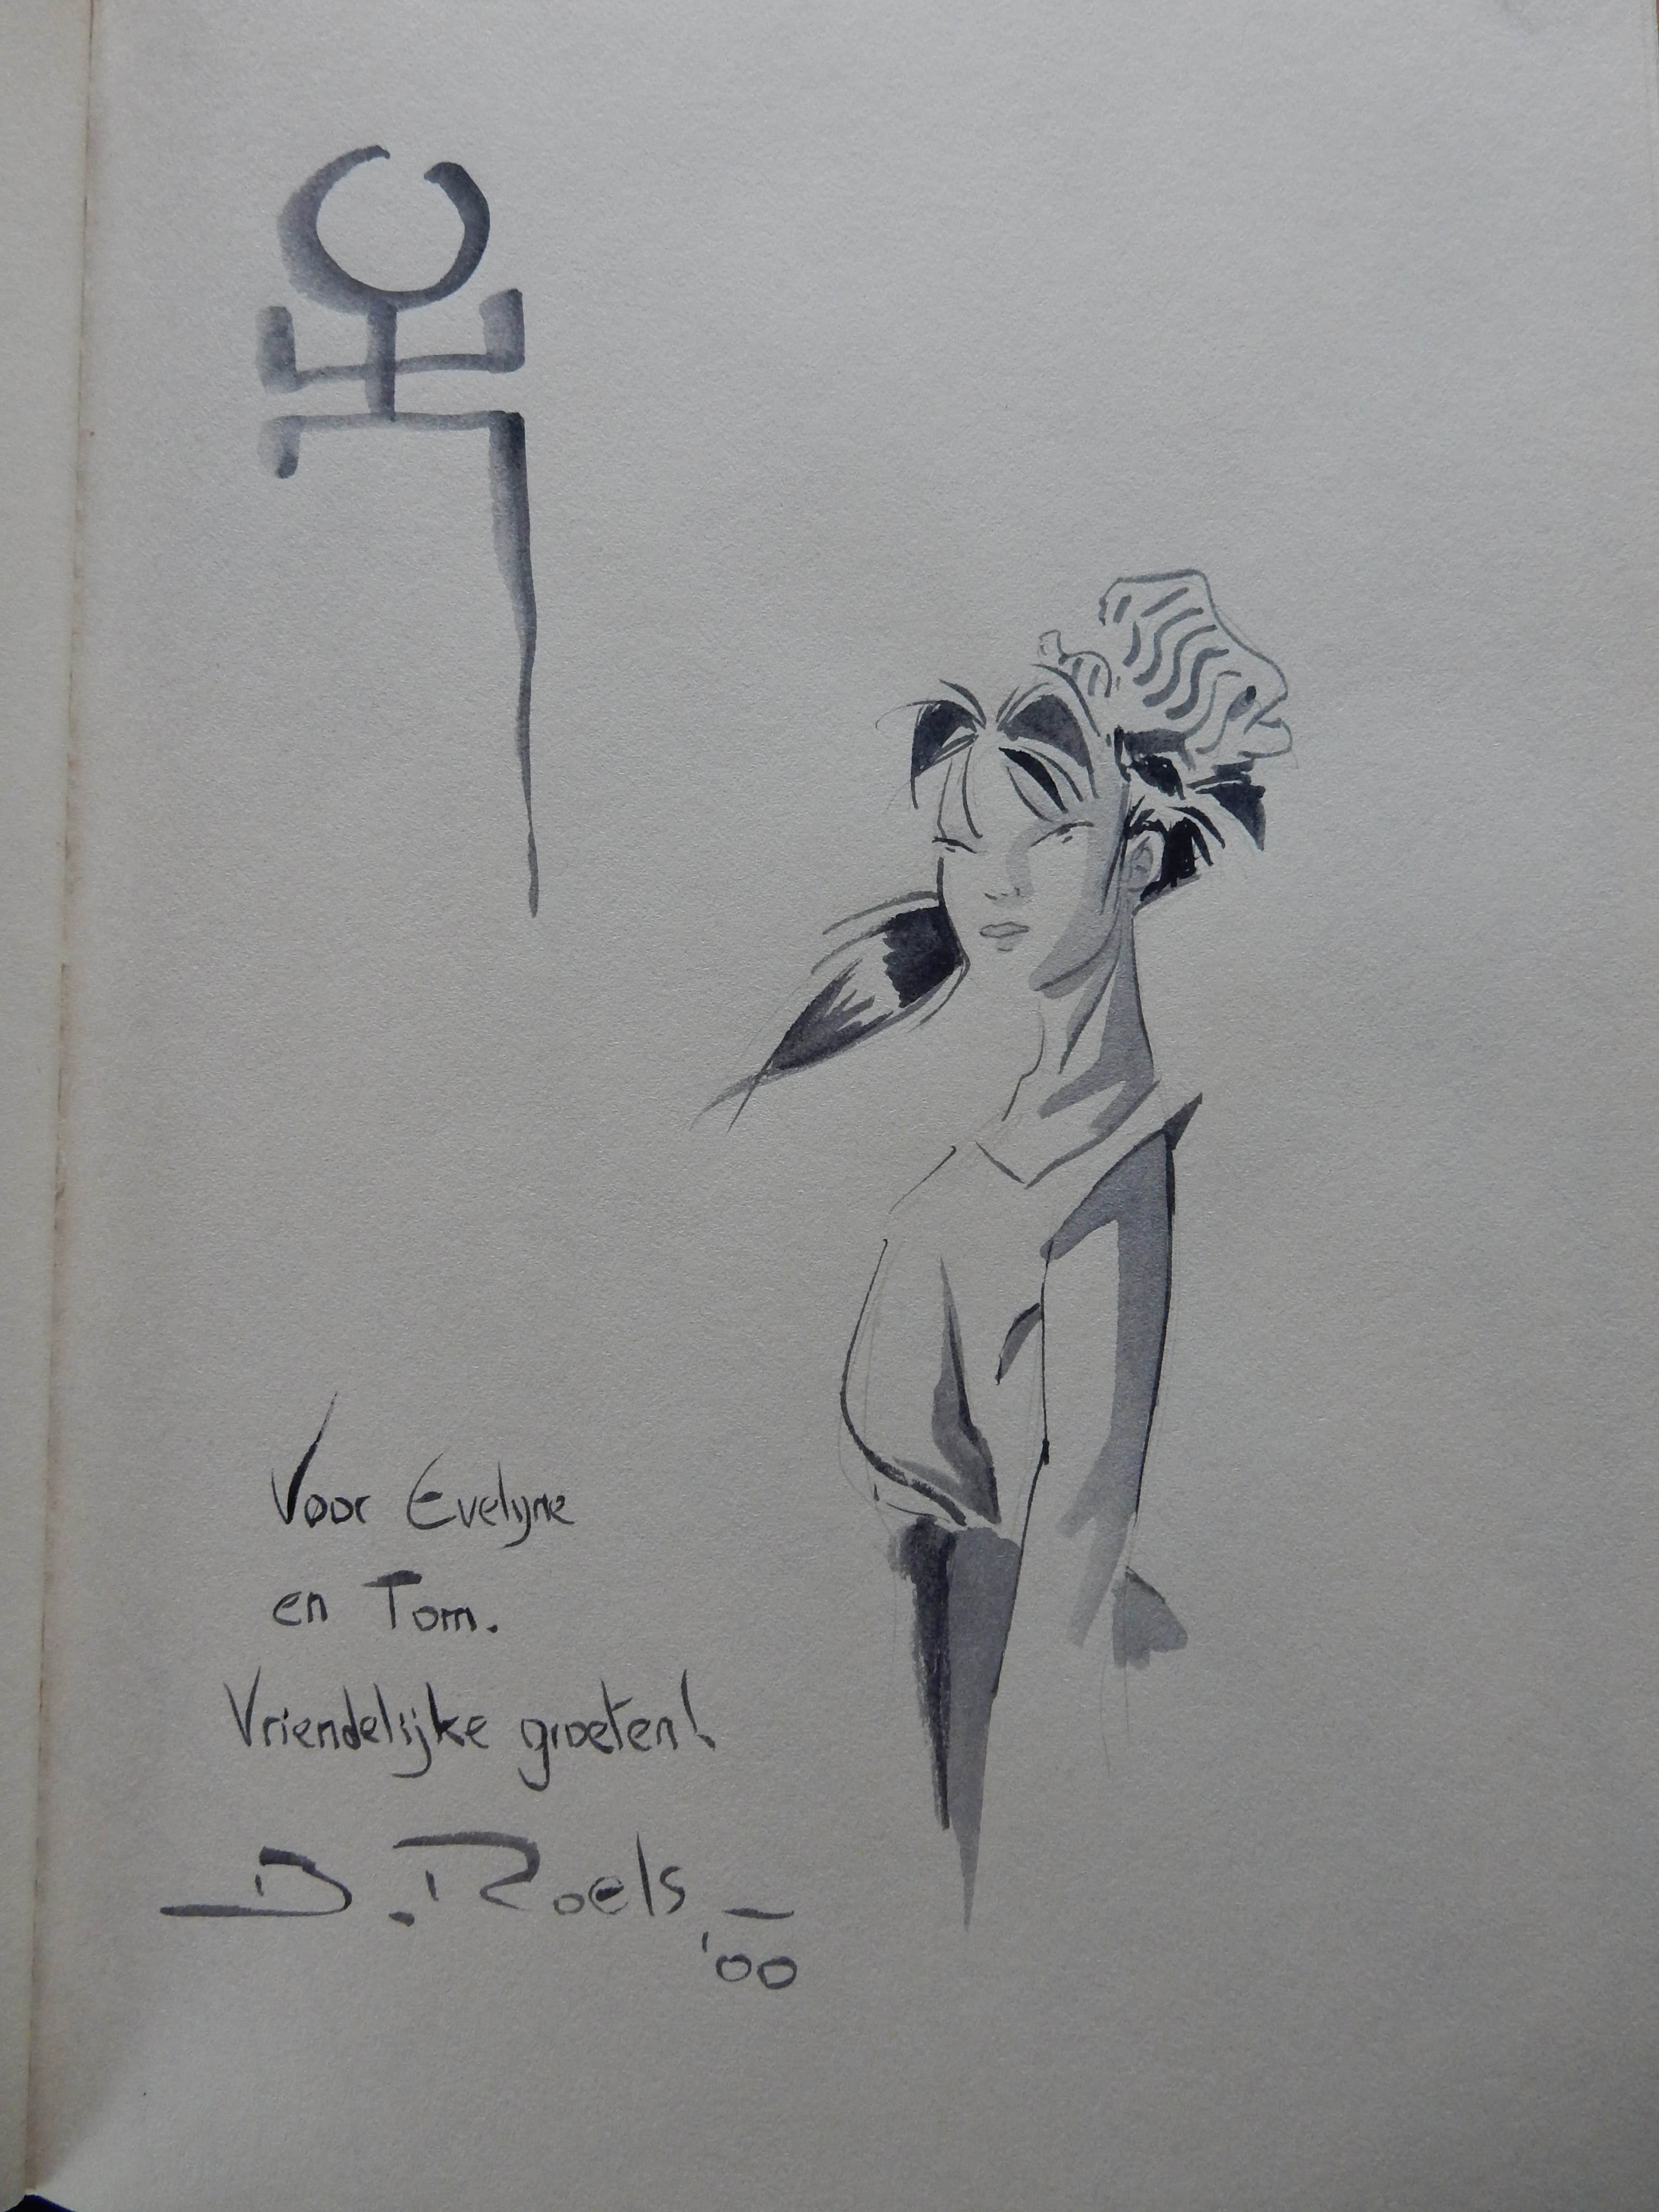 Voor Evelyne
en Tom.
Vriendelijke groeten!
D. Roels
'00